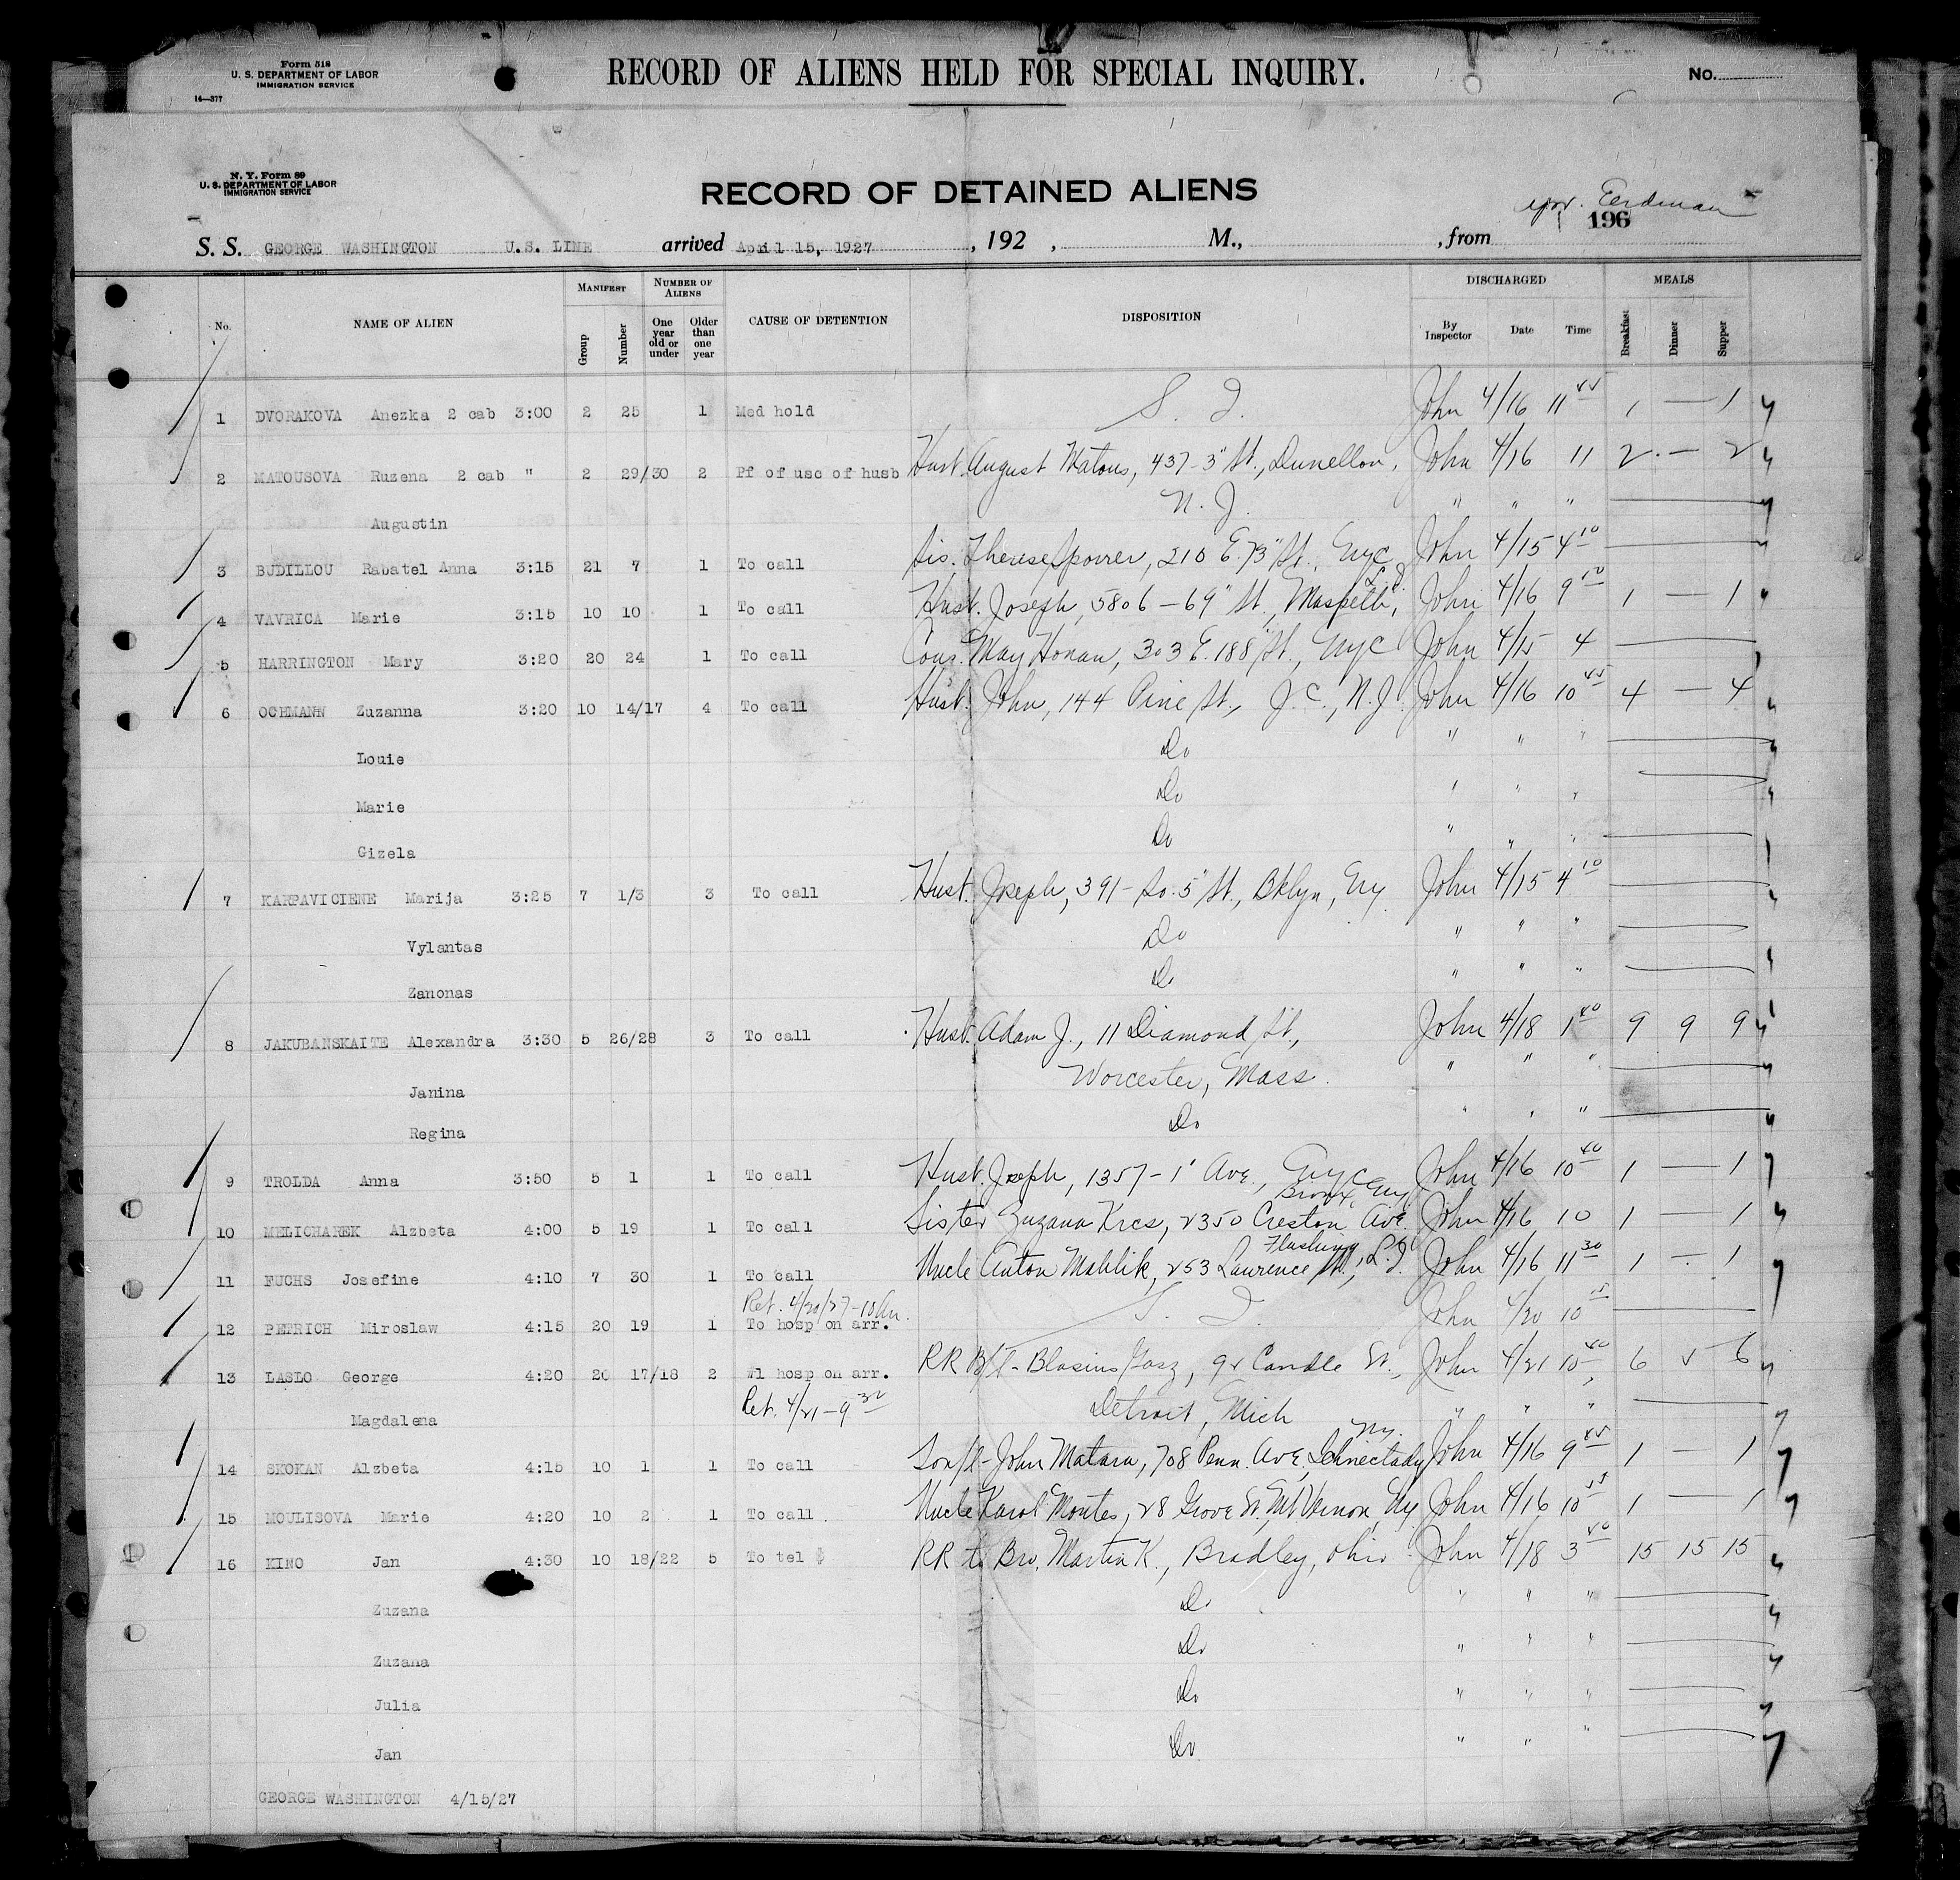 Form 518
U. S. DEPARTMENT OF LABOR
IMMIGRATION SERVICE
14—377
RECORD OF ALIENS HELD FOR SPECIAL INQUIRY.
No.
N. Y. Form 89
U. S. DEPARTMENT OF LABOR
IMMIGRATION SERVICE
RECORD OF DETAINED ALIENS
Erdman
196
S. S. GEORGE WASHINGTON U.S. LINE arrived April 15, 1927, 192 , M., , from
No. NAME OF ALIEN MANIFEST Group Number NUMBER OF ALIENS One year old or under Older than one year CAUSE OF DETENTION DISPOSITION DISCHARGED By Inspector Date Time MEALS Breakfast Dinner Supper
1 DVORAKOVA Anezka 2 cab 3:00 2 25 1 Med hold S. I. John 4/16 11 45 1 — 1
2 MATOUSOVA Ruzena 2 cab " 2 29/30 2 Pf of usc of husb Husb. August Matous, 437-3" St., Dunellon, John 4/16 11 2 — 2
Augustin N. J. " " "
3 BUDILLOU Rabatel Anna 3:15 21 7 1 To call Sis. Therese 210 E. 73" St., Nyc John 4/15 4 10
4 VAVRICA Marie 3:15 10 10 1 To call Husb. Joseph, 5806-69" St., Maspeth, L.I. John 4/16 9 50 1 — 1
5 HARRINGTON Mary 3:20 20 24 1 To call Cous. May Honan, 303 E. 188" St., Nyc John 4/15 4
6 OCHMANN Zuzanna 3:20 10 14/17 4 To call Husb. John, 144 Pine St., J. C., N. J. John 4/16 10 45 4 — 4
Louie Do " " "
Marie Do " " "
Gizela Do " " "
7 KARPAVICIENE Marija 3:25 7 1/3 3 To call Husb. Joseph, 391-So. 5" St., Bklyn, Ny John 4/15 4 10
Vylantas Do " " "
Zanonas Do " " "
8 JAKUBANSKAITE Alexandra 3:30 5 26/28 3 To call Husb. Adam J., 11 Diamond St., John 4/18 1 40 9 9 9
Janina Worcester, Mass. " " "
Regina Do " " "
9 TROLDA Anna 3:50 5 1 1 To call Husb. Joseph, 1357-1' Ave., Nyc John 4/16 10 40 1 — 1
Bronx, Ny
10 MELICHAREK Alzbeta 4:00 5 19 1 To call Sister Zuzana Krcs, 2350 Creston Ave. John 4/16 10 1 — 1
Flushing, L.I.
11 FUCHS Josefine 4:10 7 30 1 To call Uncle Anton Mahlik, 253 Lawrence St., John 4/16 11 30 1 — 1
Ret. 4/20/27-10 Am.
12 PETRICH Miroslaw 4:15 20 19 1 To hosp on arr. S. I. John 4/20 10 15
13 LASLO George 4:20 20 17/18 2 #1 hosp on arr. RR B/l-Blasius 92 Candle St., John 4/21 10 40 6 5 6
Magdalena Ret. 4/21-9 30 Detroit, Mich " " "
Ny.
14 SKOKAN Alzbeta 4:15 10 1 1 To call Son/l-John Matara, 708 Penn. Ave., Schnectady John 4/16 9 45 1 — 1
15 MOULISOVA Marie 4:20 10 2 1 To call Uncle Karol Montes, 28 Grove St., Mt Vernon, Ny John 4/16 10 1 — 1
16 KINO Jan 4:30 10 18/22 5 To tel $ RR to Bro. Martin K., Bradley, Ohio John 4/18 3 40 15 15 15
Zuzana Do " " "
Zuzana Do " " "
Julia Do " " "
Jan Do " " "
GEORGE WASHINGTON 4/15/27